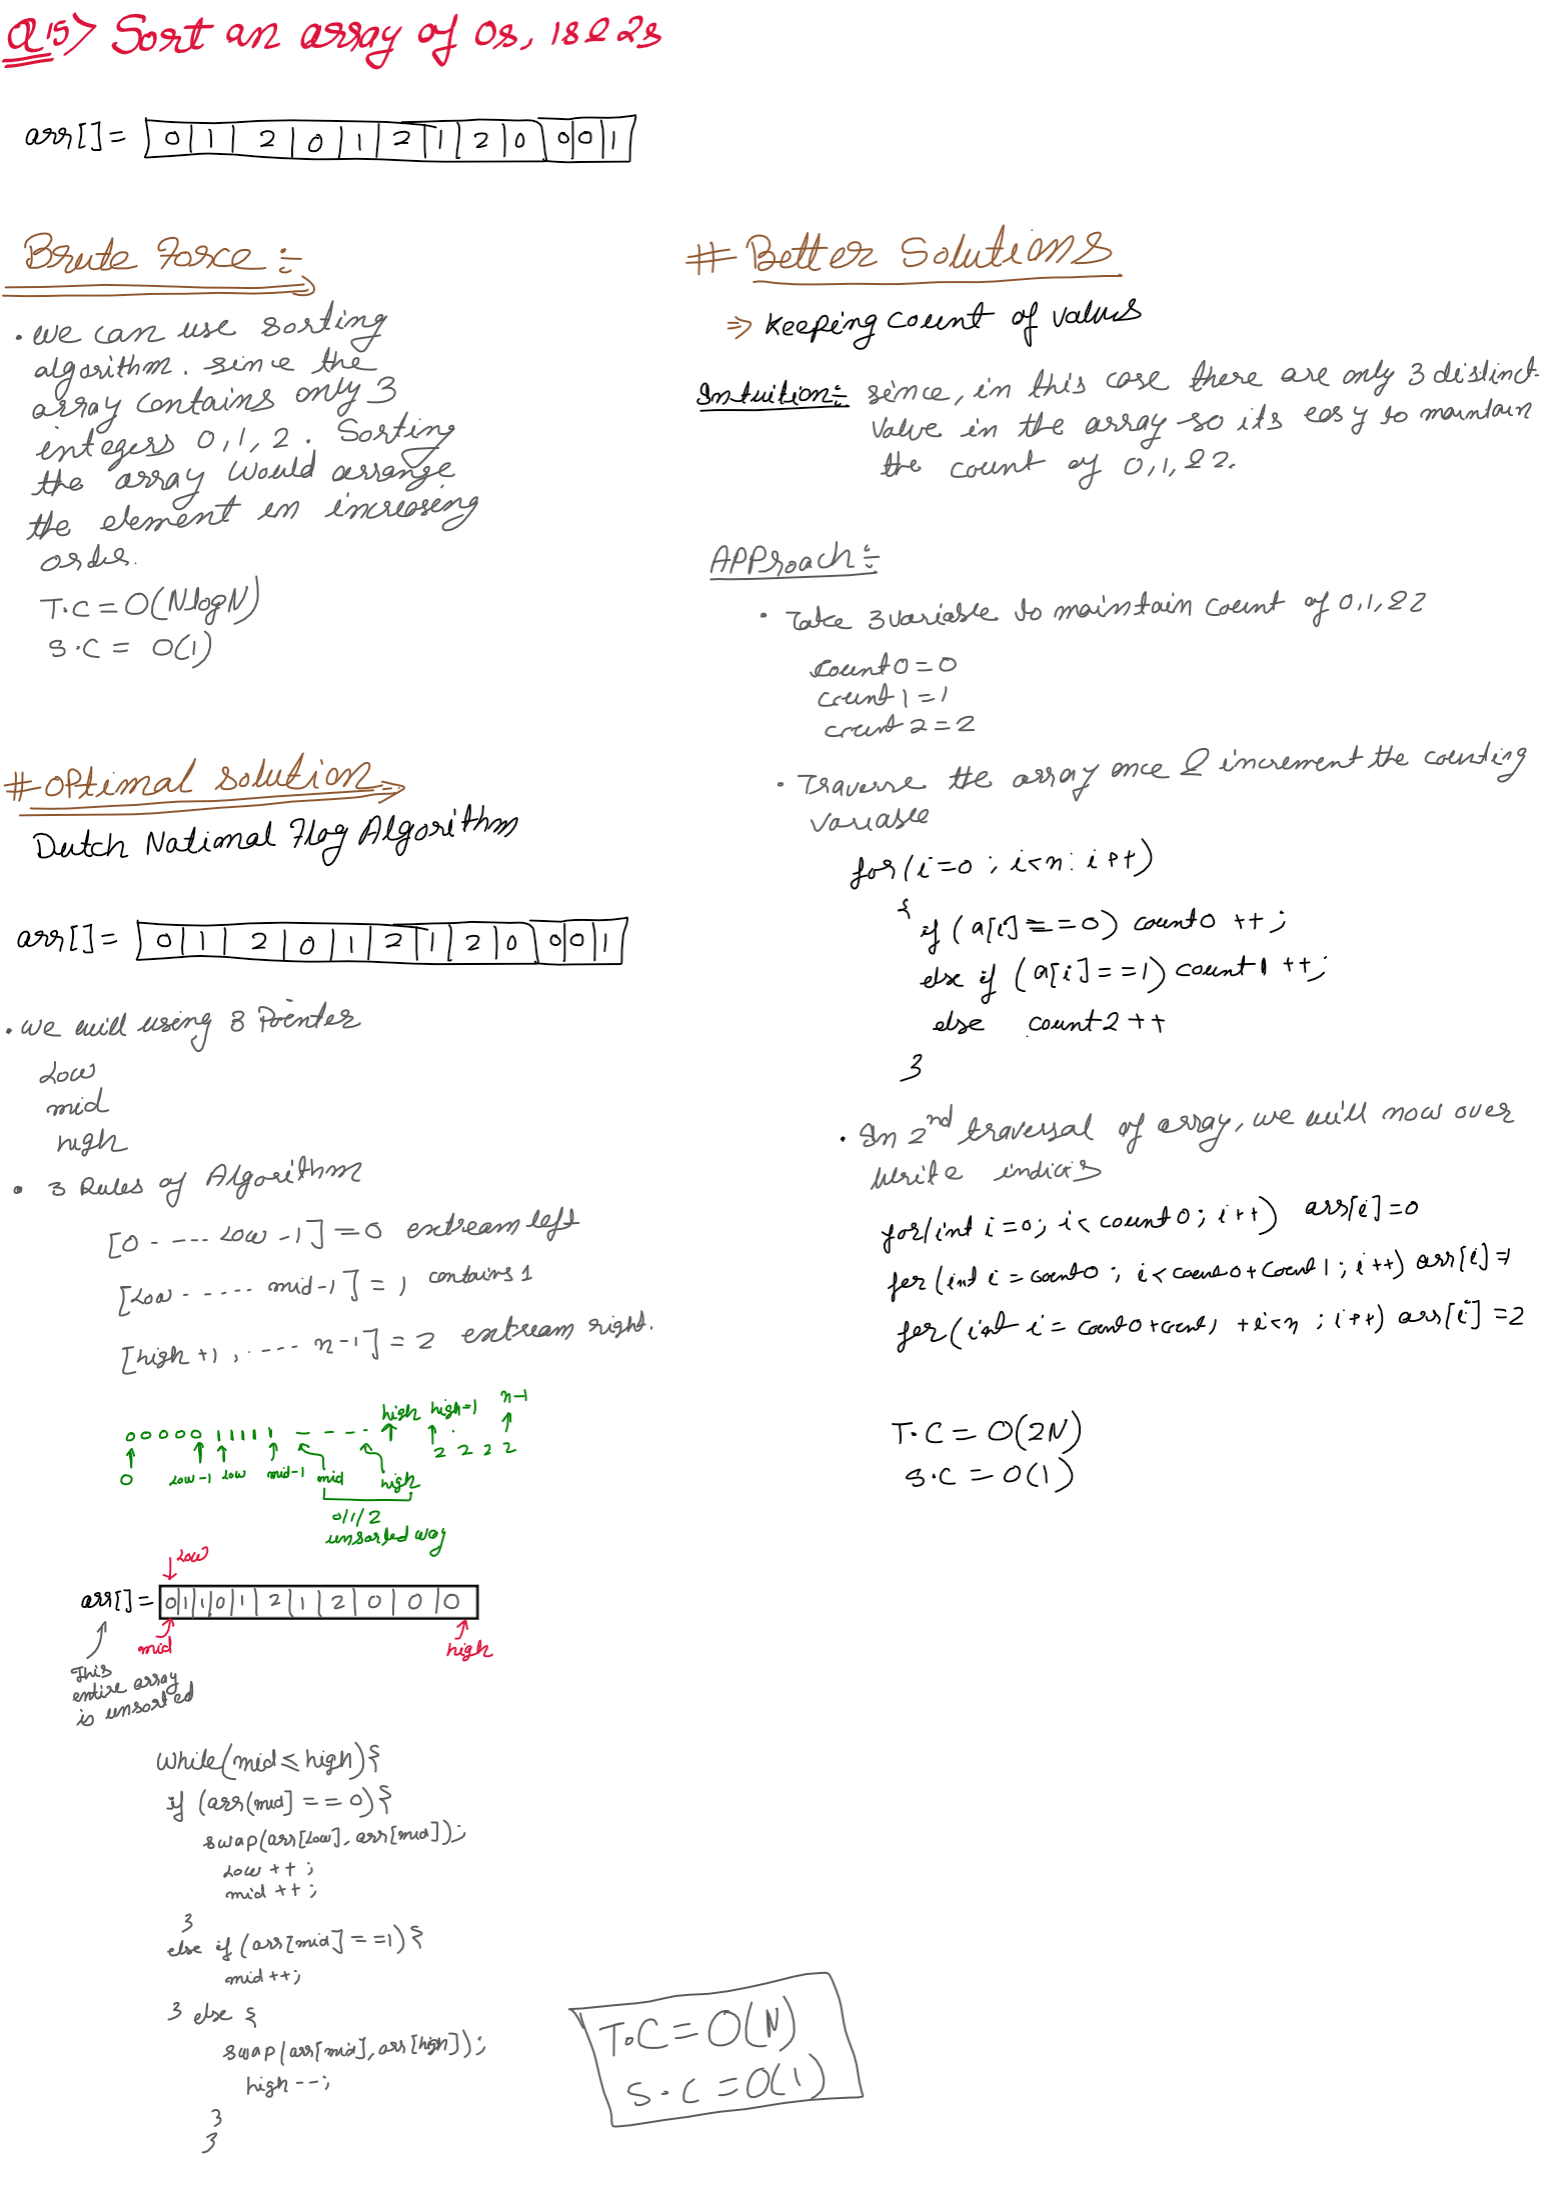 Q15> Sort an array of 0s, 1s & 2s
arr[] = 0 | 1 | 2 | 0 | 1 | 2 | 1 | 2 | 0 | 0 | 0 | 1
Brute Force :-
• we can use sorting
algorithm. since the
array contains only 3
integers 0,1,2. Sorting
the array would arrange
the element in increasing
order.
T.C = O(NlogN)
S.C = O(1)
# Optimal solution
Dutch National Flag Algorithm
arr[] = 0 | 1 | 2 | 0 | 1 | 2 | 1 | 2 | 0 | 0 | 0 | 1
• we will using 3 Pointer
Low
mid
high
• 3 Rules of Algorithm
[0 - --- Low -1] = 0 extream left
[Low - - - - - mid-1] = 1 contains 1
[high +1, - --- n-1] = 2 extream right.
high high=1 n-1
0 0 0 0 0 1 1 1 1 1 - - - - 2 2 2 2
0 Low-1 Low mid-1 mid high
0/1/2
unsorted way
Low
arr[] = 0 | 1 | 1 | 0 | 1 | 2 | 1 | 2 | 0 | 0 | 0
mid high
This
entire array
is unsorted
while(mid ≤ high){
if (arr(mid] == 0){
swap(arr[Low], arr[mid]);
Low ++ ;
mid ++ ;
}
else if (arr[mid] ==1){
mid ++;
} else {
swap(arr[mid], arr[high]);
high --;
}
}
T.C = O(N)
S.C = O(1)
# Better Solutions
⇒ Keeping count of values
Intuition:- since, in this case there are only 3 distinct
value in the array so its easy to maintain
the count of 0,1,& 2.
APProach:-
• Take 3 variable to maintain count of 0,1,& 2
count0 = 0
count1 = 1
count2 = 2
• Traverse the array once & increment the counting
variable
for(i=0 ; i<n: i++)
{
if (a[i] == 0) count0 ++ ;
else if (a[i] == 1) count1 ++;
else count2 ++
}
• In 2nd traversal of array, we will now over
write indices
for(int i=0; i< count0; i++) arr[i]=0
for(int i = count0 ; i<count0+count1; i++) arr[i]=1
for(int i = count0+count1 +i<n ; i++) arr[i] =2
T.C = O(2N)
S.C = O(1)